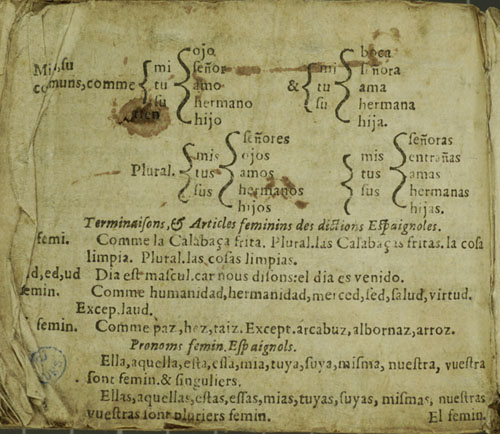 ojo boca
Mi, ſu mi ſeñor mi ſeñora
comuns,comme tu amo & tu ama
ſu hermano ſu hermana
hijo hija.
ſeñores ſeñoras
mis ojos mis entrañas
Plural. tus amos tus amas
ſus hermanos ſus hermanas
hijos hijas.
Terminaiſons,& Articles feminins des dictions Eſpaignoles.
femi. Comme la Calabaça frita. Plural.las Calabaças fritas. la coſa
limpia. Plural.las coſas limpias.
d,ed,ud Dia eſt maſcul.car nous diſons:el dia es venido.
femin. Comme humanidad,hermanidad,merced,ſed,ſalud,virtud.
Excep.laud.
femin. Comme paz,hez,raiz. Except.arcabuz,albornaz,arroz.
Pronoms femin.Eſpaignols.
Ella,aquella,eſta,eſſa,mia,tuya,ſuya,miſma, nueſtra, vueſtra
ſont femin.& ſinguliers.
Ellas,aquellas,eſtas,eſſas,mias,tuyas,ſuyas, miſmas, nueſtras
vueſtras ſont pluriers femin. El femin.